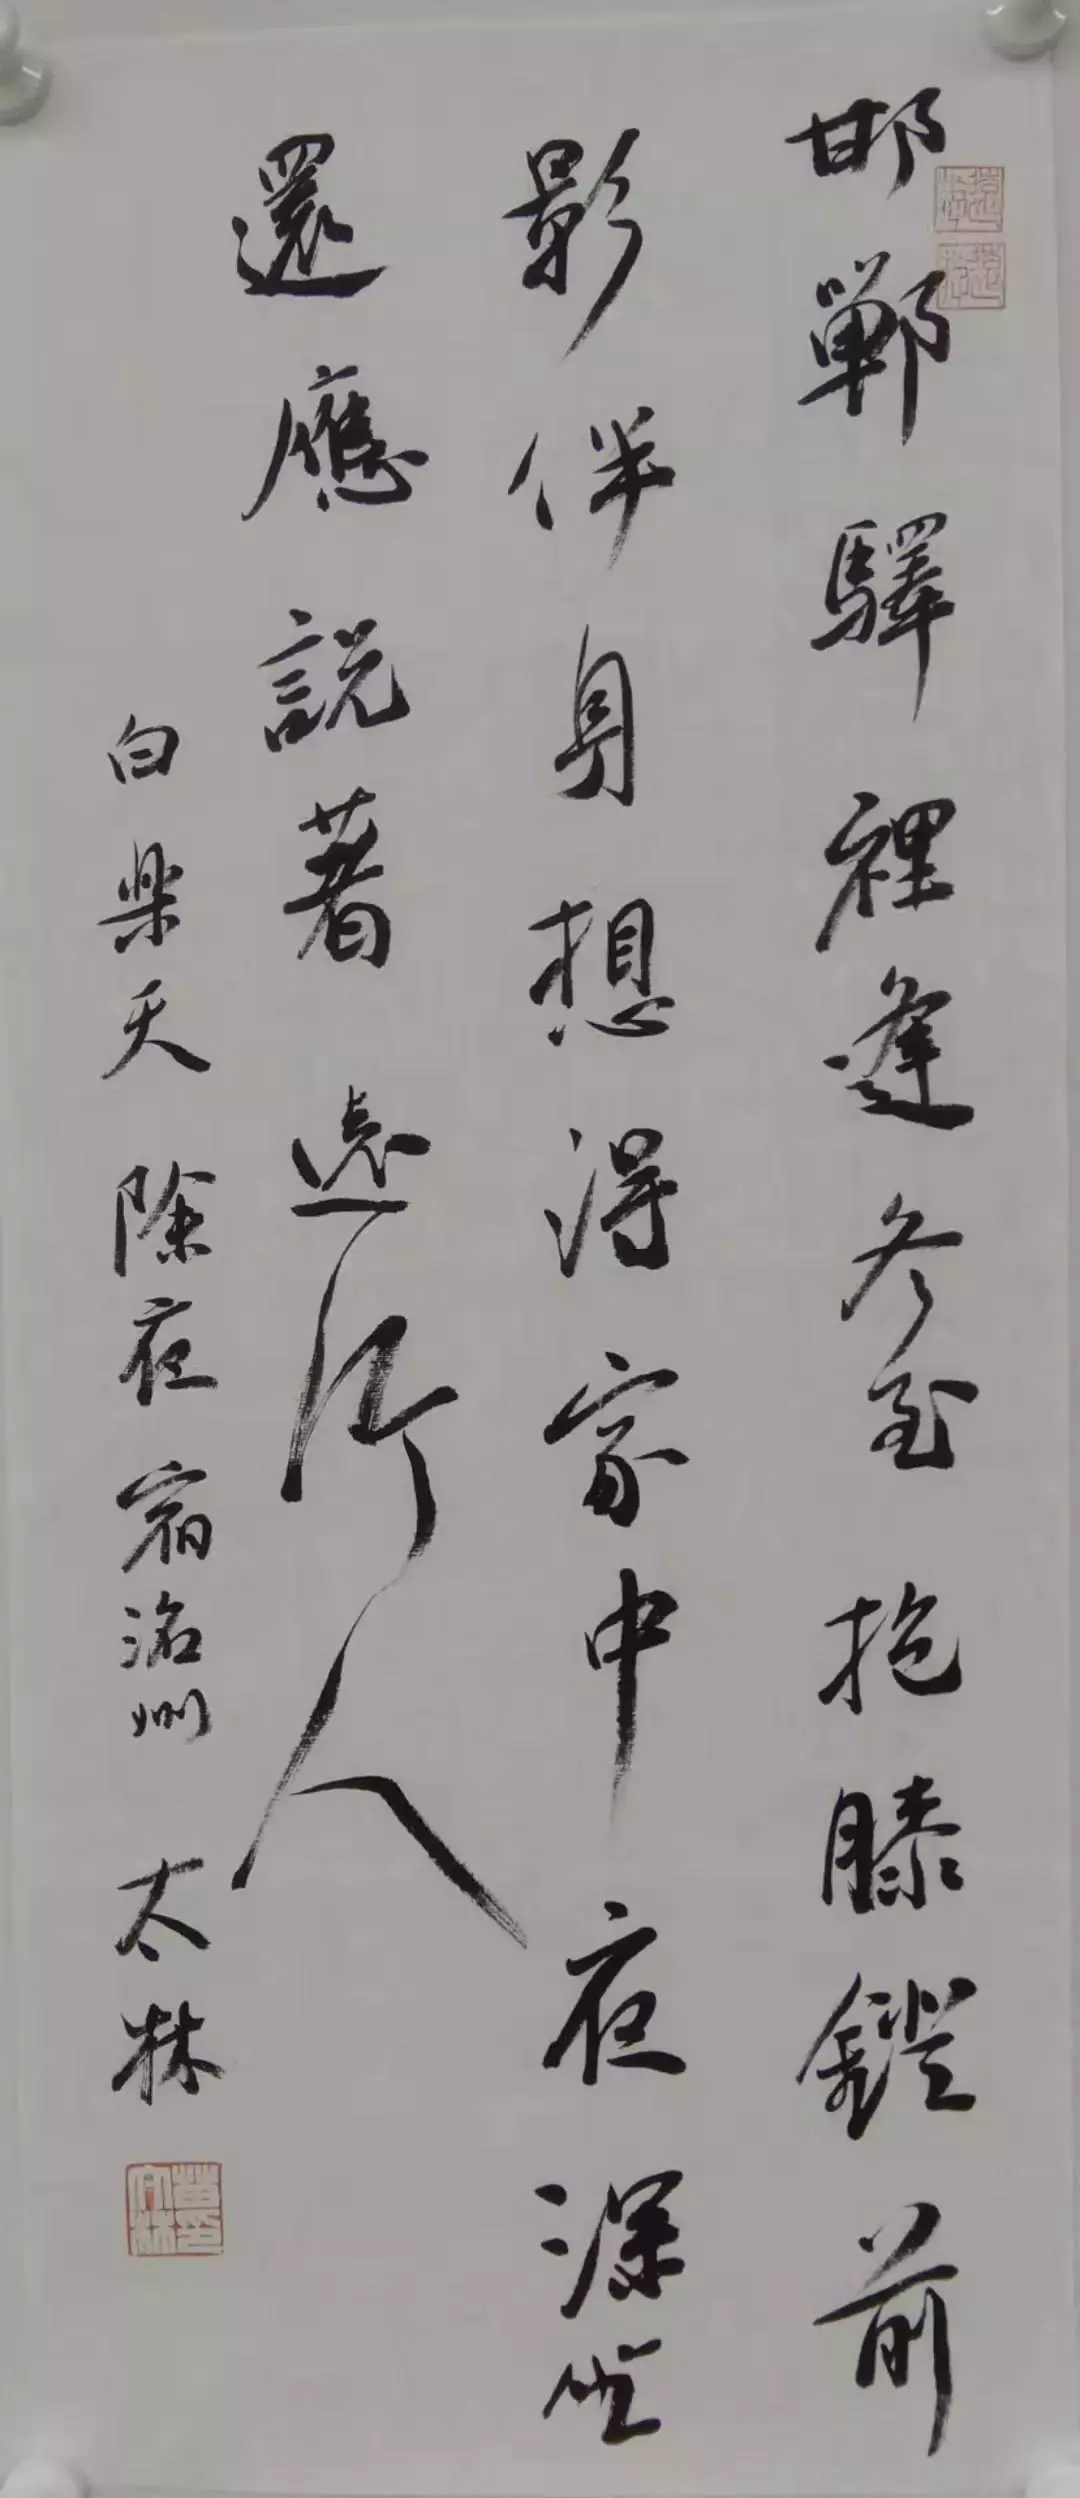 邯鄲驛裡逢冬至抱膝鐙前
影伴身想得家中夜深坐
還應說著遠行人
白樂天除夜宿洺州太林